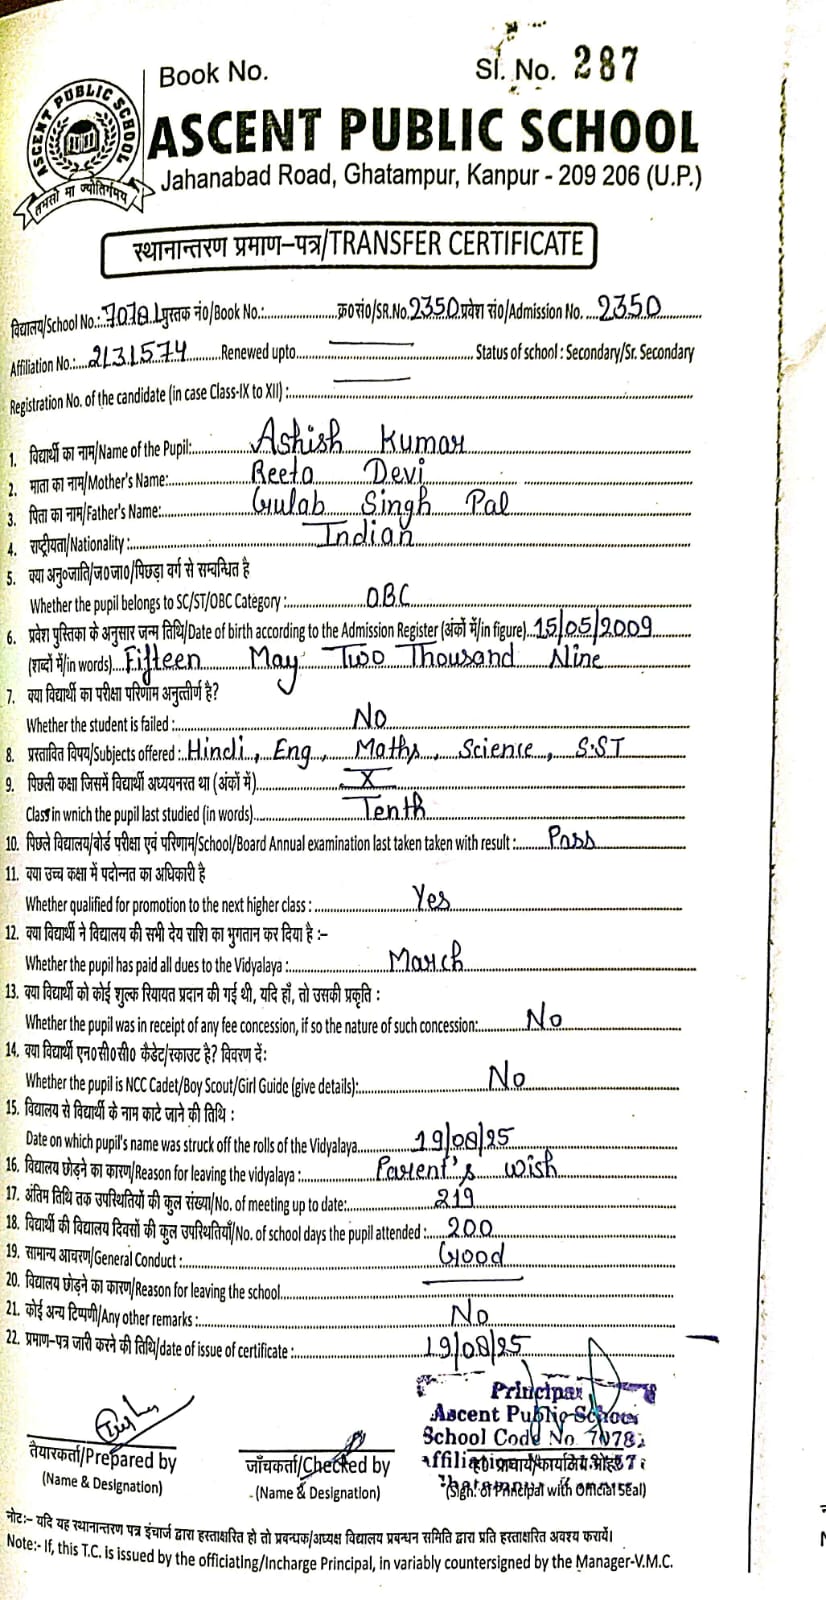 Book No. Sl. No. 287
ASCENT PUBLIC SCHOOL
तमसो मा ज्योतिर्गमय
ASCENT PUBLIC SCHOOL
Jahanabad Road, Ghatampur, Kanpur - 209 206 (U.P.)
स्थानान्तरण प्रमाण-पत्र/TRANSFER CERTIFICATE
विद्यालय/School No.: 70781 पुस्तक नं०/Book No.:.......... क्र०सं०/SR.No. 2350 प्रवेश सं०/Admission No. ....2350
Affiliation No.:....2131574......Renewed upto..........Status of school : Secondary/Sr. Secondary
Registration No. of the candidate (in case Class-IX to XII) :..........
1. विद्यार्थी का नाम/Name of the Pupil:..........Ashish Kumar
2. माता का नाम/Mother's Name:..........Reeta Devi
3. पिता का नाम/Father's Name:..........Gulab Singh Pal
4. राष्ट्रीयता/Nationality :..........Indian
5. क्या अनु०जाति/ज०जा०/पिछड़ा वर्ग से सम्बन्धित है
Whether the pupil belongs to SC/ST/OBC Category :..........OBC
6. प्रवेश पुस्तिका के अनुसार जन्म तिथि/Date of birth according to the Admission Register (अंकों में/in figure)..15/05/2009
(शब्दों में/in words)....Fifteen May Two Thousand Nine
7. क्या विद्यार्थी का परीक्षा परिणाम अनुत्तीर्ण है?
Whether the student is failed :..........No
8. प्रस्तावित विषय/Subjects offered :..Hindi, Eng, Maths, Science, S.ST
9. पिछली कक्षा जिसमें विद्यार्थी अध्ययनरत था (अंकों में)..........X
Class in wnich the pupil last studied (in words)..........Tenth
10. पिछले विद्यालय/बोर्ड परीक्षा एवं परिणाम/School/Board Annual examination last taken taken with result :..........Pass
11. क्या उच्च कक्षा में पदोन्नत का अधिकारी है
Whether qualified for promotion to the next higher class : ..........Yes
12. क्या विद्यार्थी ने विद्यालय की सभी देय राशि का भुगतान कर दिया है :-
Whether the pupil has paid all dues to the Vidyalaya :..........March
13. क्या विद्यार्थी को कोई शुल्क रियायत प्रदान की गई थी, यदि हाँ, तो उसकी प्रकृति :
Whether the pupil was in receipt of any fee concession, if so the nature of such concession:..........No
14. क्या विद्यार्थी एन०सी०सी० कैडेट/स्काउट है? विवरण दें:
Whether the pupil is NCC Cadet/Boy Scout/Girl Guide (give details):..........No
15. विद्यालय से विद्यार्थी के नाम काटे जाने की तिथि :
Date on which pupil's name was struck off the rolls of the Vidyalaya..........19/08/25
16. विद्यालय छोड़ने का कारण/Reason for leaving the vidyalaya :..........Parent's wish
17. अंतिम तिथि तक उपस्थितियों की कुल संख्या/No. of meeting up to date:..........219
18. विद्यार्थी की विद्यालय दिवसों की कुल उपस्थितियाँ/No. of school days the pupil attended :....200
19. सामान्य आचरण/General Conduct :..........Good
20. विद्यालय छोड़ने का कारण/Reason for leaving the school..........
21. कोई अन्य टिप्पणी/Any other remarks :..........No
22. प्रमाण-पत्र जारी करने की तिथि/date of issue of certificate :..........19/08/25
Principal
Ascent Public School
School Code No. 7078
तैयारकर्ता/Prepared by
(Name & Designation)
जाँचकर्ता/Checked by
(Name & Designation)
(Sign. of Principal with Official Seal)
नोट:- यदि यह स्थानान्तरण पत्र इंचार्ज द्वारा हस्ताक्षरित हो तो प्रबन्धक/अध्यक्ष विद्यालय प्रबन्धन समिति द्वारा प्रति हस्ताक्षरित अवश्य करायें।
Note:- If, this T.C. is issued by the officiating/Incharge Principal, in variably countersigned by the Manager-V.M.C.